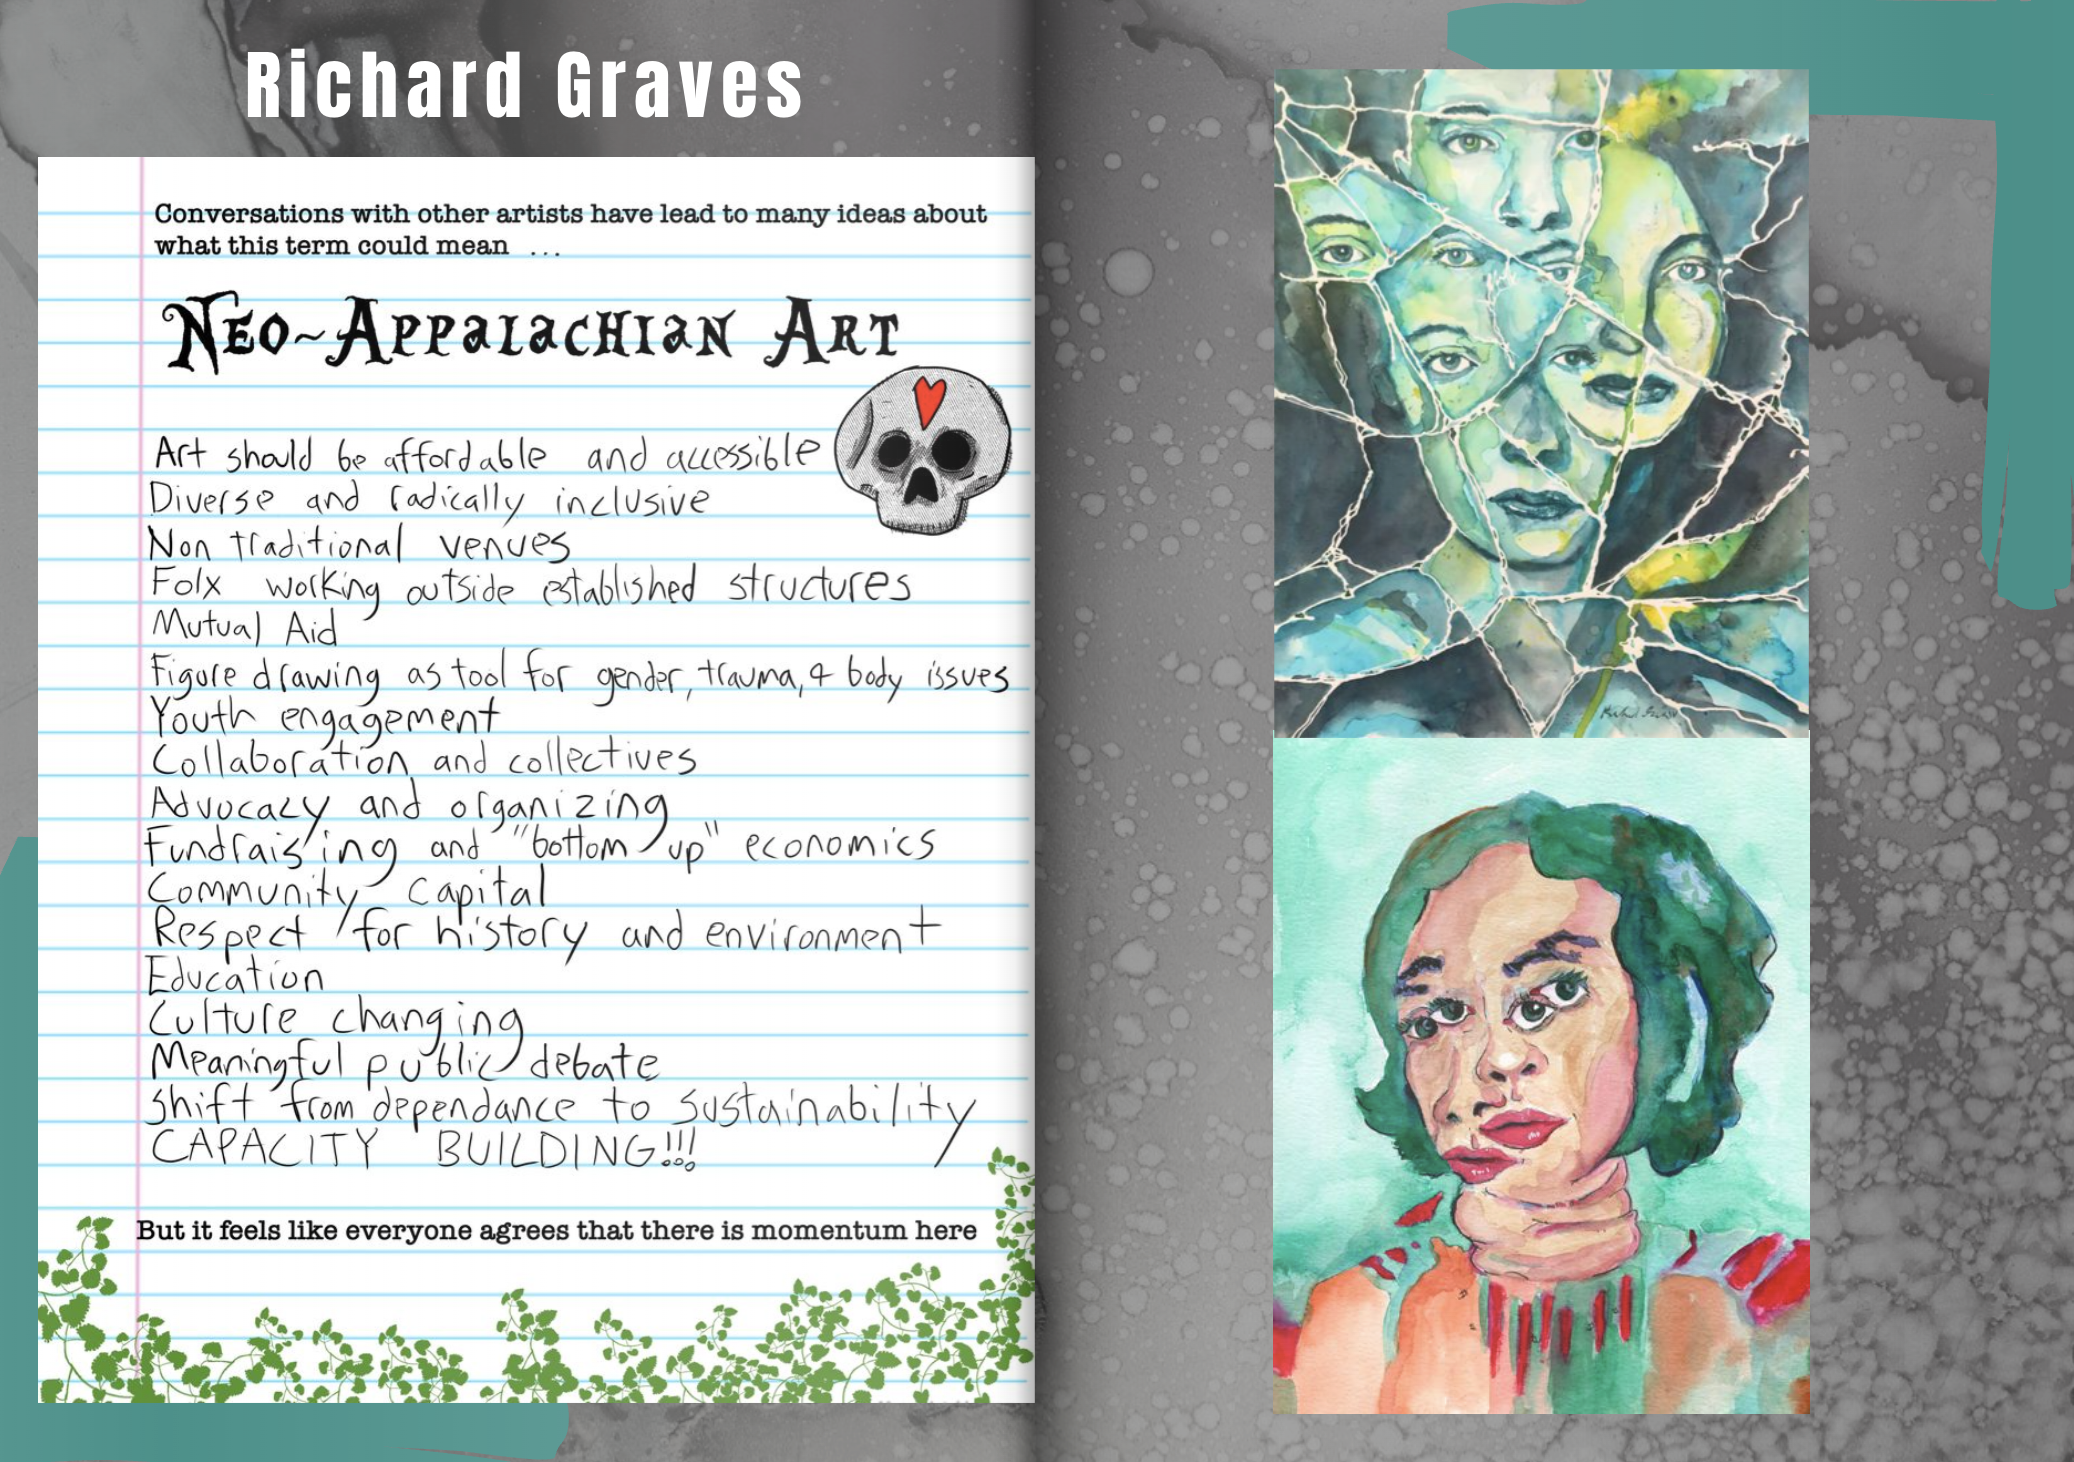 Richard Graves
Conversations with other artists have lead to many ideas about
what this term could mean ...
Neo~Appalachian Art
Art should be affordable and accessible
Diverse and radically inclusive
Non traditional venues
Folx working outside established structures
Mutual Aid
Figure drawing as tool for gender, trauma, & body issues
Youth engagement
Collaboration and collectives
Advocacy and organizing
Fundraising and "bottom up" economics
Community Capital
Respect for history and environment
Education
Culture changing
Meaningful public debate
Shift from dependance to sustainability
CAPACITY BUILDING!!!
But it feels like everyone agrees that there is momentum here